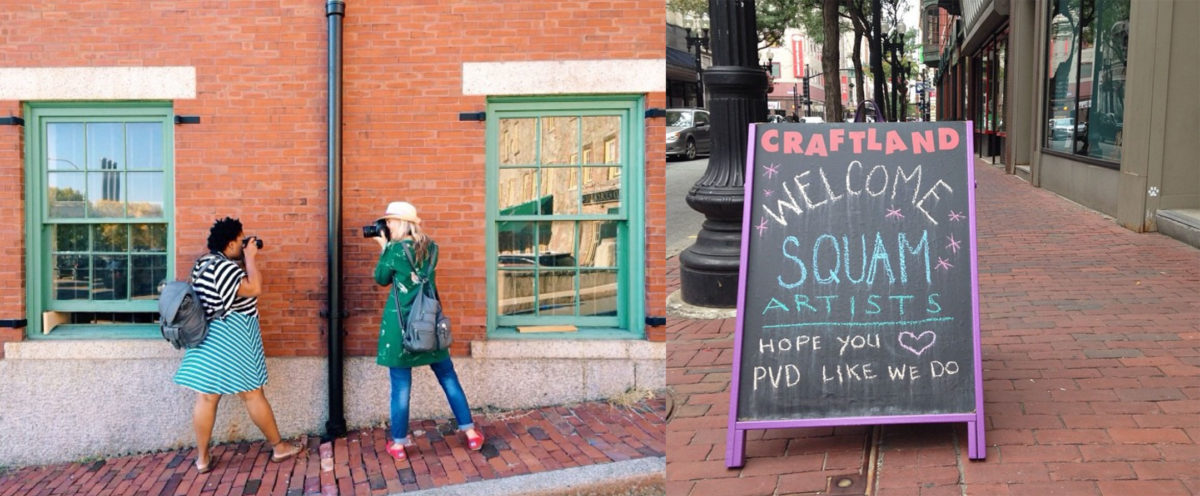 CRAFTLAND
WELCOME
SQUAM
ARTISTS
HOPE YOU ♡
PVD LIKE WE DO